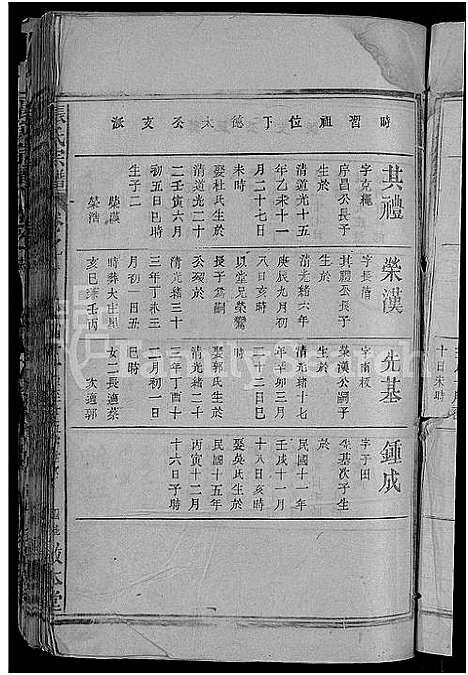 時習祖位下德太公支派
其禮
字克繩
序昌公長子
生於
清道光十五
年乙未十一
月二十七日
未時
娶杜氏生於
清道光二十
二壬寅六月
初五日巳時
生子二
榮漢
榮浩
榮漢
字長清
其禮公長子
生於
清光緒六年
庚辰九月初
八日亥時
以堂兄榮鸞
長子為嗣
公歿於
清光緒三十
三年丁未三
月初一日丑
時葬大山星
亥巳兼壬丙
先基
字南枝
榮漢公嗣子
生於
清光緒十七
年辛卯三月
二十二日巳
時
娶郭氏生於
清光緒二十
三年丁酉十
二月初一日
巳時
女二長適蔡
次適郭
鍾成
字于田
先基次子生
於
民國十一年
壬戌十一月
十八日亥時
娶吳氏生於
民國十五年
丙寅十二月
十六日子時
張氏宗譜
敦本堂
十日未時